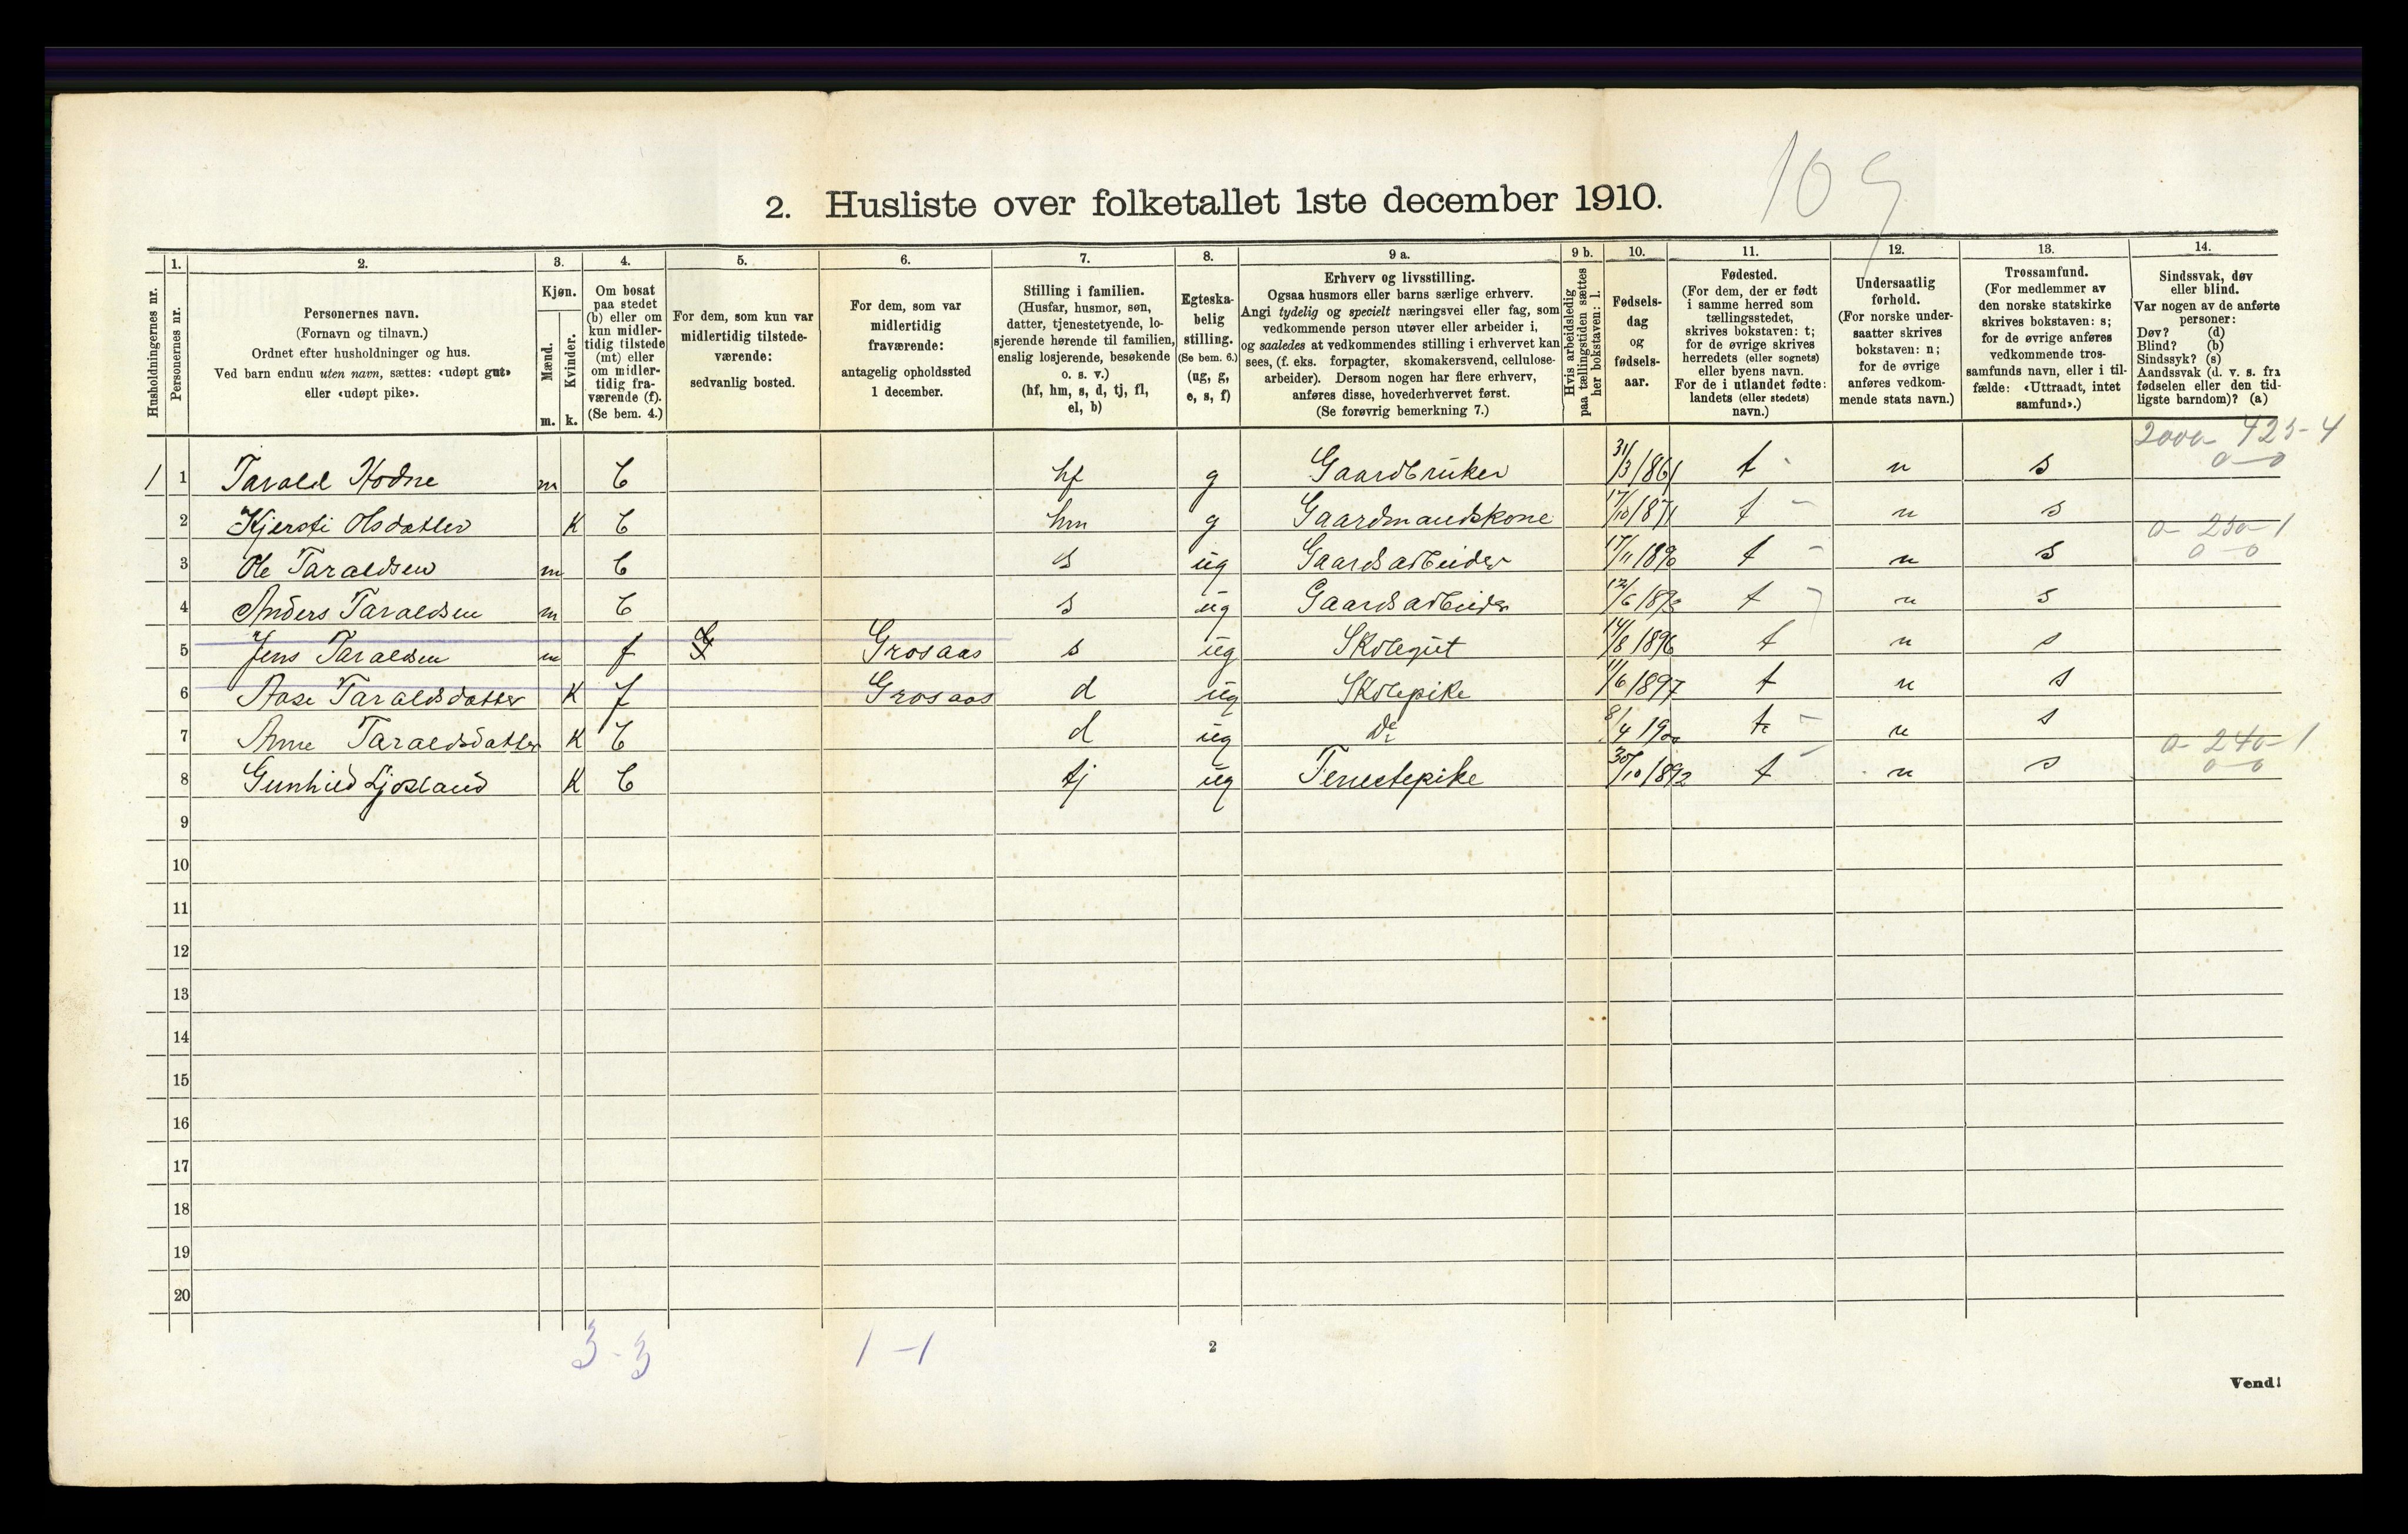 109
2. Husliste over folketallet 1ste december 1910.
Husholdningernes nr. | 1. Personernes nr. | 2. Personernes navn. (Fornavn og tilnavn.) Ordnet efter husholdninger og hus. Ved barn endnu uten navn, sættes: «udøpt gut» eller «udøpt pike». | 3. Kjøn. Mænd. m. Kvinder. k. | 4. Om bosat paa stedet (b) eller om kun midlertidig tilstede (mt) eller om midlertidig fraværende (f). (Se bem. 4.) | 5. For dem, som kun var midlertidig tilstedeværende: sedvanlig bosted. | 6. For dem, som var midlertidig fraværende: antagelig opholdssted 1 december. | 7. Stilling i familien. (Husfar, husmor, søn, datter, tjenestetyende, losjerende hørende til familien, enslig losjerende, besøkende o. s. v.) (hf, hm, s, d, tj, fl, el, b) | 8. Egteskabelig stilling. (Se bem. 6.) (ug, g, e, s, f) | 9 a. Erhverv og livsstilling. Ogsaa husmors eller barns særlige erhverv. Angi tydelig og specielt næringsvei eller fag, som vedkommende person utøver eller arbeider i, og saaledes at vedkommendes stilling i erhvervet kan sees, (f. eks. forpagter, skomakersvend, cellulosearbeider). Dersom nogen har flere erhverv, anføres disse, hovederhvervet først. (Se forøvrig bemerkning 7.) | 9 b. Hvis arbeidsledig paa tællingstiden sættes her bokstaven: l. | 10. Fødselsdag og fødselsaar. | 11. Fødested. (For dem, der er født i samme herred som tællingsstedet, skrives bokstaven: t; for de øvrige skrives herredets (eller sognets) eller byens navn. For de i utlandet fødte: landets (eller stedets) navn.) | 12. Undersaatlig forhold. (For norske undersaatter skrives bokstaven: n; for de øvrige anføres vedkommende stats navn.) | 13. Trossamfund. (For medlemmer av den norske statskirke skrives bokstaven: s; for de øvrige anføres vedkommende trossamfunds navn, eller i tilfælde: «Uttraadt, intet samfund».) | 14. Sindssvak, døv eller blind. Var nogen av de anførte personer: Døv? (d) Blind? (b) Sindssyk? (s) Aandssvak (d. v. s. fra fødselen eller den tidligste barndom)? (a)
2000 - 425 - 4
0 - 0
1 1 Tarald Hodne m b hf g Gaardbruker 31/3 1861 t n s
2 Kjersti Olsdatter K b hm g Gaardmandskone 17/10 1871 t n s
0 - 250 - 1
0 - 0
3 Ole Taraldsen m b s ug Gaardsarbeider 17/11 1890 t n s
4 Anders Taraldsen m b s ug Gaardsarbeider 12/6 1893 t n s
5 Jens Taraldsen m f Grosaas s ug Skolegut 14/8 1896 t n s
6 Aase Taraldsdatter K f Grosaas d ug Skolepike 11/6 1897 t n s
7 Anne Taraldsdatter K b d ug Do 8/4 1900 t n s
0 - 240 - 1
0 - 0
8 Gunhild Ljosland K b tj ug Tenestepike 30/10 1892 t n s
9
10
11
12
13
14
15
16
17
18
19
20
3 - 3 1 - 1
2
Vend!